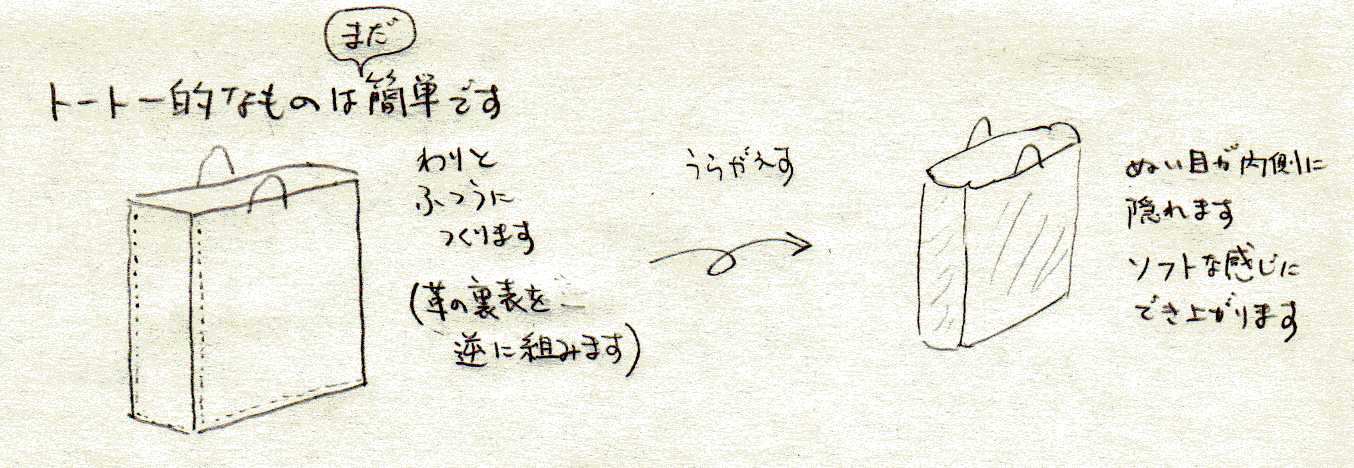 まだ
トートー的なものは簡単です
わりと
ふつうに
つくります
(革の裏表を
逆に組みます)
うらがえす
ぬい目が内側に
隠れます
ソフトな感じに
でき上がります